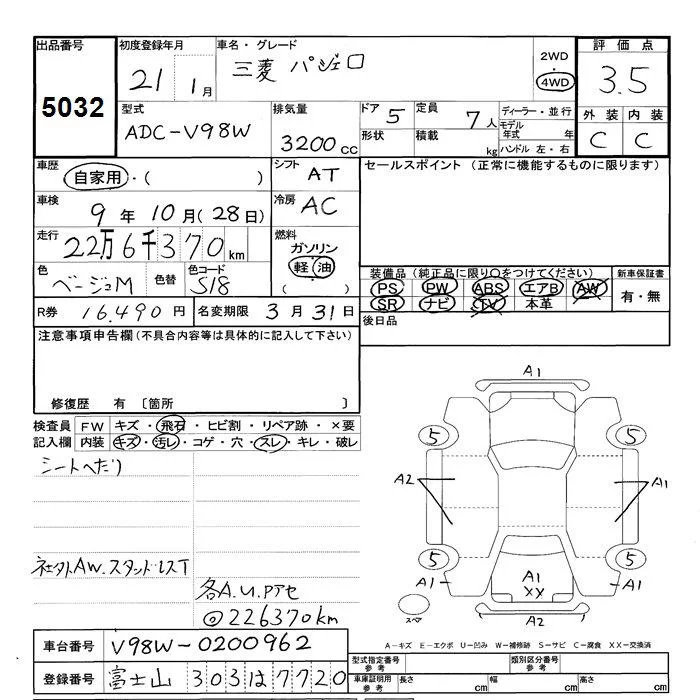 出品番号
5032
初度登録年月
21 1月
車名・グレード
三菱 パジェロ
2WD
4WD
評価点
3.5
外装 内装
C C
型式
ADC-V98W
排気量
3200cc
ドア 5
形状
定員 7人
積載 kg
ディーラー・並行
モデル年式 年
ハンドル 左・右
車歴
自家用・( )
シフト AT
車検
9年10月(28日)
冷房 AC
走行
22万6千370km
燃料
ガソリン
軽油
( )
色
ベージュM
色替
色コード
S18
R券 16,490円
名変期限 3月31日
セールスポイント (正常に機能するものに限ります)
装備品(純正品に限り○をつけてください)
PS PW ABS エアB AW
SR ナビ TV 本革
新車保証書
有・無
後日品
注意事項申告欄(不具合内容等は具体的に記入して下さい)
修復歴 有 〔箇所 〕
検査員記入欄
FW キズ・飛石・ヒビ割・リペア跡・×要
内装 キズ・汚レ・コゲ・穴・スレ・キレ・破レ
シートへたり
社外AW.スタッドレスT
各A.U.Pアセ
@226370km
A1
5 5
A2 A1
5 5
A1 A1 A1
XX
スペア
A2
A-キズ E-エクボ U-凹み W-補修跡 S-サビ C-腐食 XX-交換済
車台番号 V98W-0200962
登録番号 富士山 303は7720
型式指定番号 参考
類別区分番号 参考
車庫証明用 参考
長さ cm 幅 cm 高さ cm